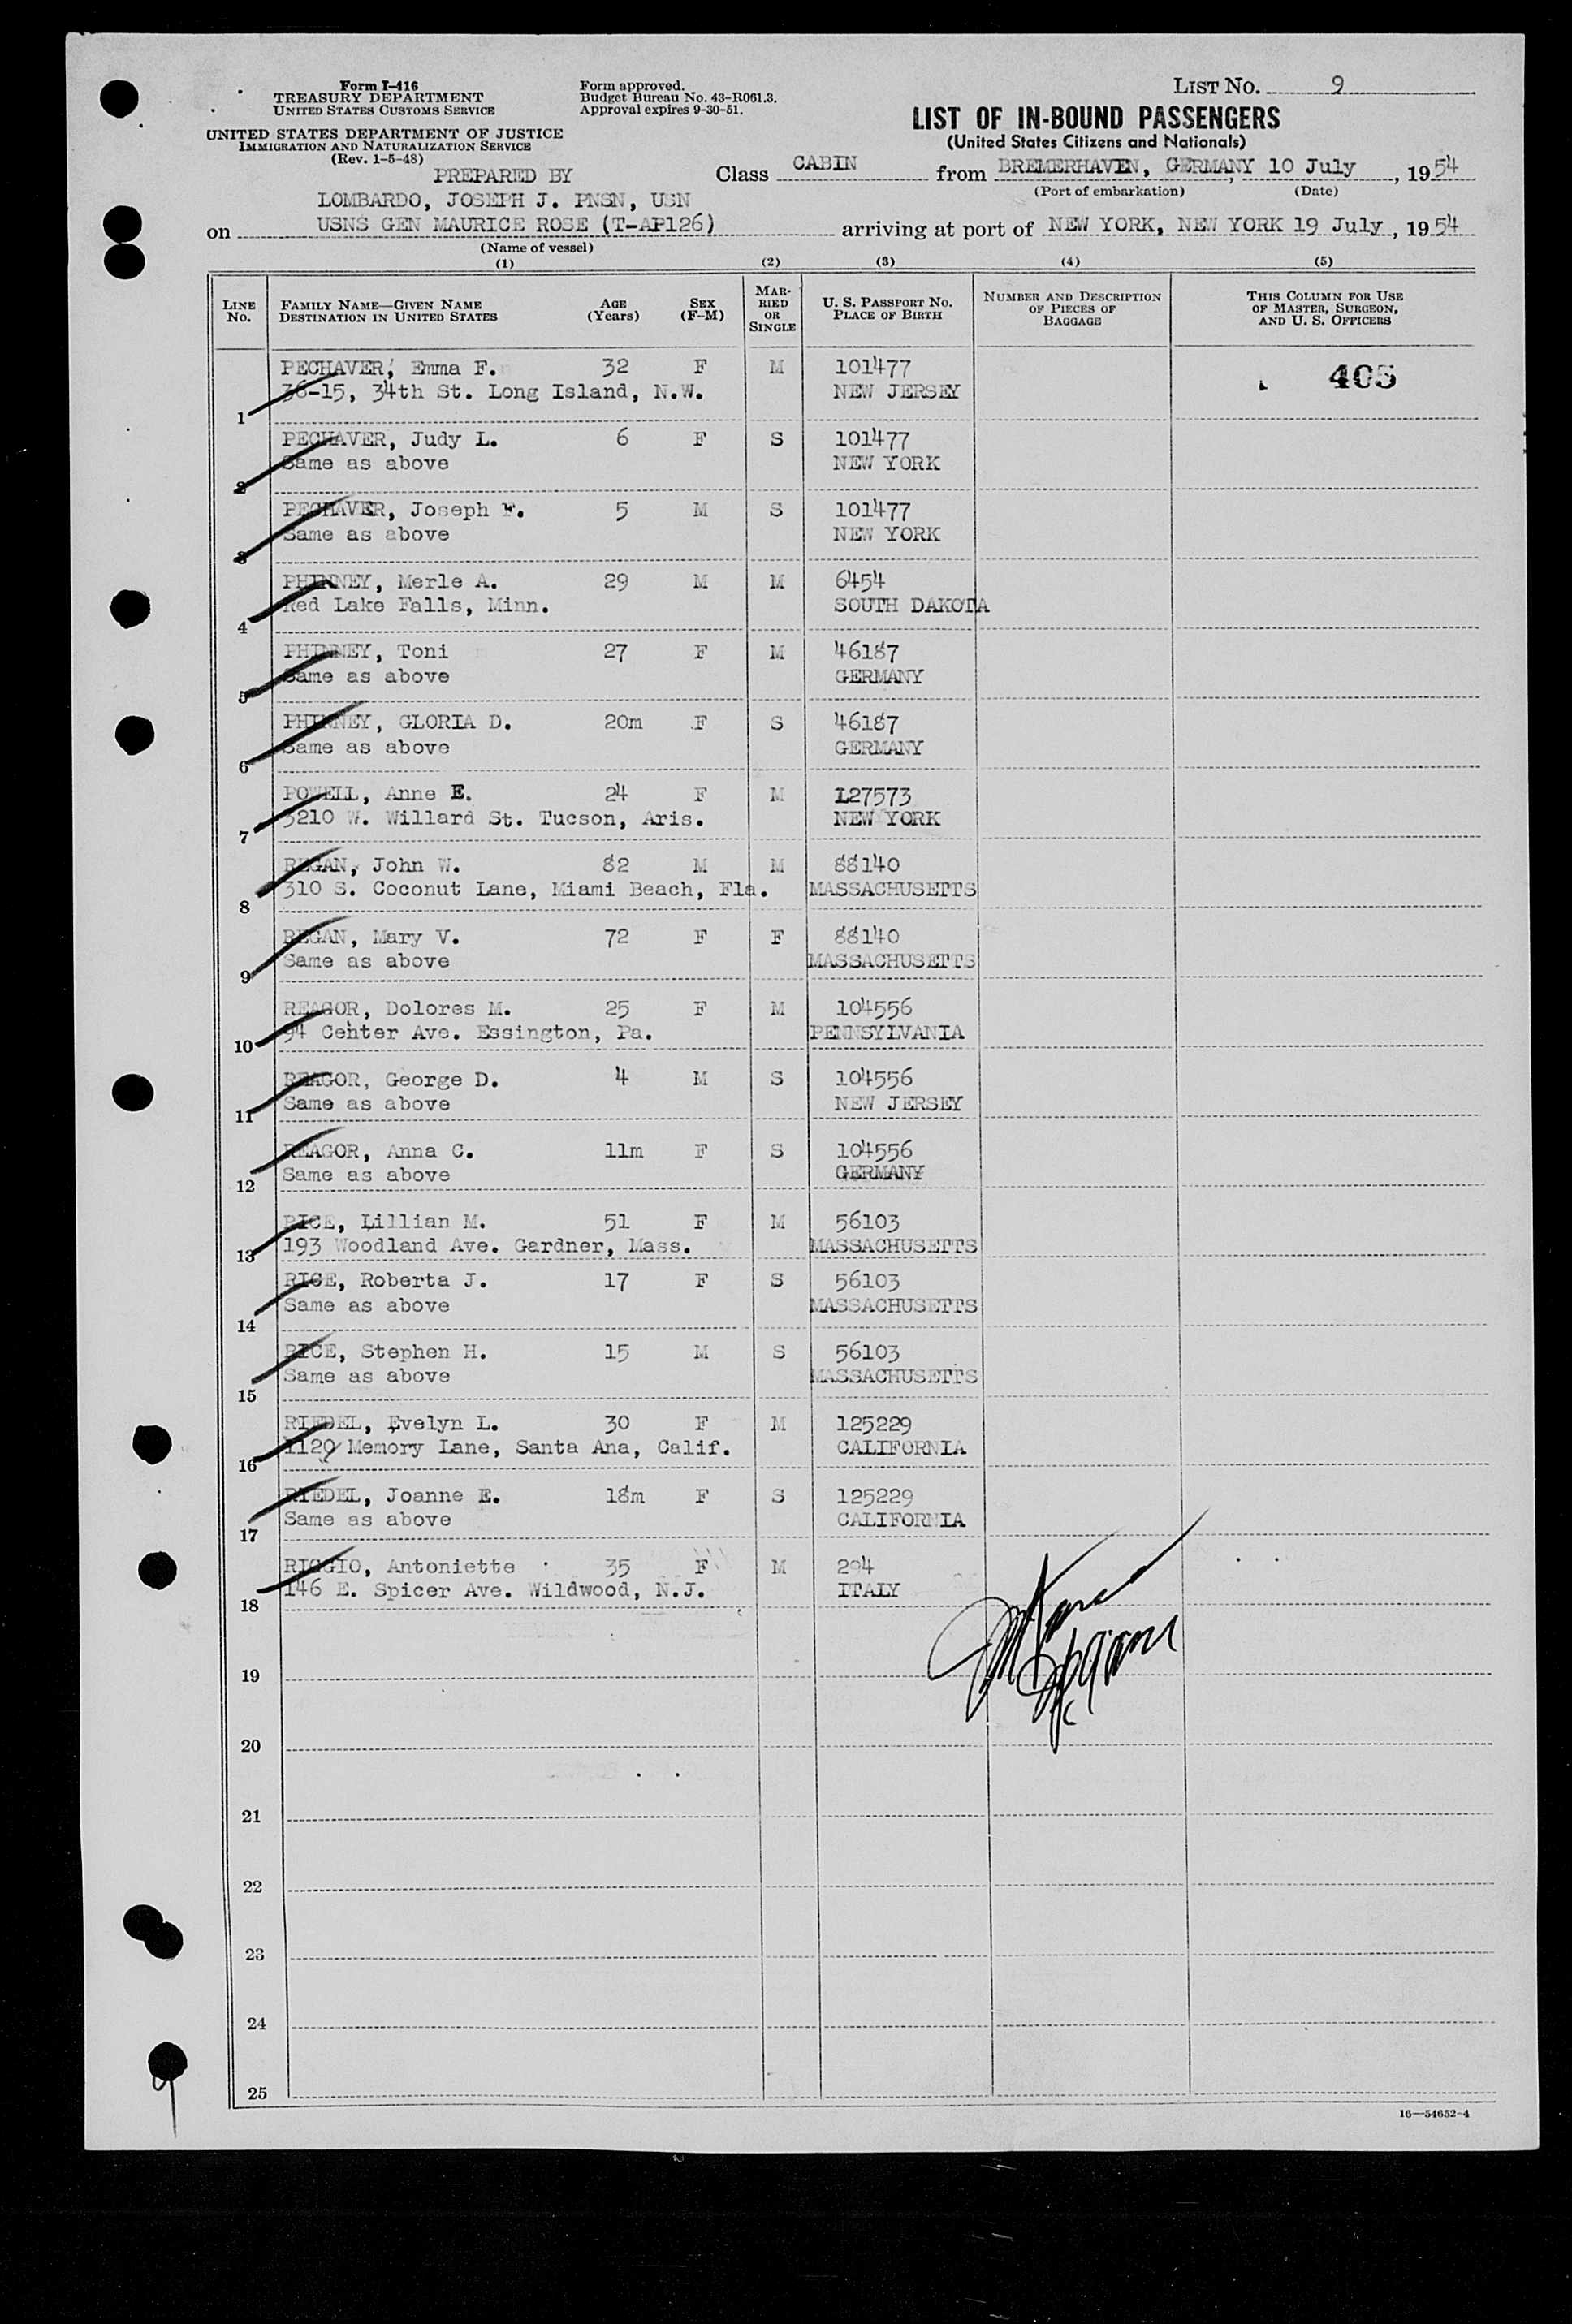 Form I-416
TREASURY DEPARTMENT
UNITED STATES CUSTOMS SERVICE
UNITED STATES DEPARTMENT OF JUSTICE
IMMIGRATION AND NATURALIZATION SERVICE
(Rev. 1-5-48)
Form approved.
Budget Bureau No. 43-R061.3.
Approval expires 9-30-51.
LIST NO. 9
LIST OF IN-BOUND PASSENGERS
(United States Citizens and Nationals)
PREPARED BY
LOMBARDO, JOSEPH J. PNSN, USN
Class CABIN from BREMERHAVEN, GERMANY, 10 July, 1954
(Port of embarkation) (Date)
on USNS GEN MAURICE ROSE (T-AP126) arriving at port of NEW YORK, NEW YORK 19 July, 1954
(Name of vessel)
(1) (2) (3) (4) (5)
LINE NO. FAMILY NAME—GIVEN NAME DESTINATION IN UNITED STATES AGE (Years) SEX (F-M) MARRIED OR SINGLE U. S. PASSPORT NO. PLACE OF BIRTH NUMBER AND DESCRIPTION OF PIECES OF BAGGAGE THIS COLUMN FOR USE OF MASTER, SURGEON, AND U. S. OFFICERS
PECHAVER, Emma F. 32 F M 101477 405
1 36-15, 34th St. Long Island, N.W. NEW JERSEY
PECHAVER, Judy L. 6 F S 101477
2 Same as above NEW YORK
PECHAVER, Joseph F. 5 M S 101477
3 Same as above NEW YORK
PHINNEY, Merle A. 29 M M 6454
4 Red Lake Falls, Minn. SOUTH DAKOTA
PHINNEY, Toni 27 F M 46187
5 Same as above GERMANY
PHINNEY, GLORIA D. 20m F S 46187
6 Same as above GERMANY
POWELL, Anne E. 24 F M 127573
7 3210 W. Willard St. Tucson, Aris. NEW YORK
REGAN, John W. 82 M M 88140
8 310 S. Coconut Lane, Miami Beach, Fla. MASSACHUSETTS
REGAN, Mary V. 72 F F 88140
9 Same as above MASSACHUSETTS
REAGOR, Dolores M. 25 F M 104556
10 94 Center Ave. Essington, Pa. PENNSYLVANIA
REAGOR, George D. 4 M S 104556
11 Same as above NEW JERSEY
REAGOR, Anna C. 11m F S 104556
12 Same as above GERMANY
RICE, Lillian M. 51 F M 56103
13 193 Woodland Ave. Gardner, Mass. MASSACHUSETTS
RICE, Roberta J. 17 F S 56103
14 Same as above MASSACHUSETTS
RICE, Stephen H. 15 M S 56103
15 Same as above MASSACHUSETTS
RIEDEL, Evelyn L. 30 F M 125229
16 1120 Memory Lane, Santa Ana, Calif. CALIFORNIA
RIEDEL, Joanne E. 18m F S 125229
17 Same as above CALIFORNIA
RIGGIO, Antoniette 35 F M 294
18 146 E. Spicer Ave. Wildwood, N.J. ITALY
19
20
21
22
23
24
25
16—54652-4